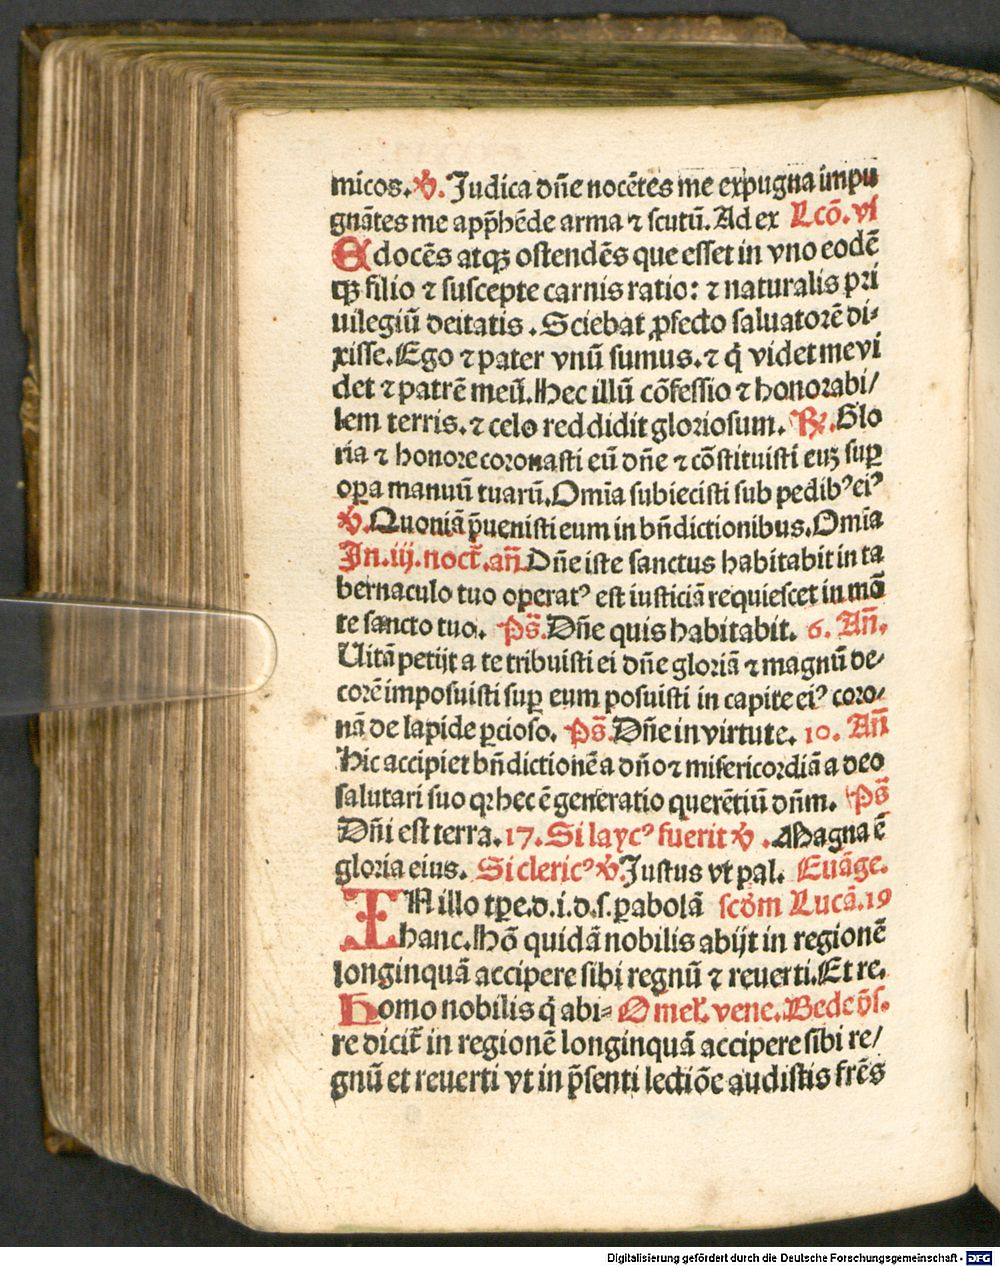 micos. ℣. Judica dn̄e nocētes me expugna impu
gnātes me app̄hēde arma ⁊ scutū. Ad ex Lcō. vi
Edocēs atqꝫ ostendēs que esset in vno eodē
qꝫ filio ⁊ suscepte carnis ratio: ⁊ naturalis pri
uilegiū deitatis. Sciebat ꝓfecto saluatorē di-
xisse. Ego ⁊ pater vnū sumus. ⁊ q̇ videt me vi
det ⁊ patrē meū. Hec illū cōfessio ⁊ honorabi/
lem terris. ⁊ celo reddidit gloriosum. ℟. Glo
ria ⁊ honore coronasti eū dn̄e ⁊ cōstituisti euꝫ suꝑ
oꝑa manuū tuarū. Om̄ia subiecisti sub pedibꝰ eiꝰ
℣. Quoniā p̄uenisti eum in bn̄dictionibus. Om̄ia
In .iij. noct̄. an̄. Dn̄e iste sanctus habitabit in ta
bernaculo tuo operatꝰ est iusticiā requiescet in mō
te sancto tuo. Ps̄. Dn̄e quis habitabit. 6. An̄.
Uitā petijt a te tribuisti ei dn̄e gloriā ⁊ magnū de-
corē imposuisti suꝑ eum posuisti in capite eiꝰ coro/
nā de lapide p̄cioso. Ps̄. Dn̄e in virtute. 10. An̄
Hic accipiet bn̄dictionē a dn̄o ⁊ misericordiā a deo
salutari suo qr hec ē generatio querētiū dn̄m. Ps̄
Dn̄i est terra. 17. Si laycꝰ fuerit ℣. Magna ē
gloria eius. Si clericꝰ ℣. Justus vt pal. Euāge.
IN illo tꝑe. d. i. d. s. ꝑabolā scd̄m Lucā. 19
hanc. Hō quidā nobilis abijt in regionē
longinquā accipere sibi regnū ⁊ reuerti. Et re.
Homo nobilis q̇ abi= Omel̄. vene. Bede p̄s.
re dicit̄ in regionē longinquā accipere sibi re/
gnū et reuerti vt in p̄senti lectiōe audistis frēs
Digitalisierung gefördert durch die Deutsche Forschungsgemeinschaft - DFG